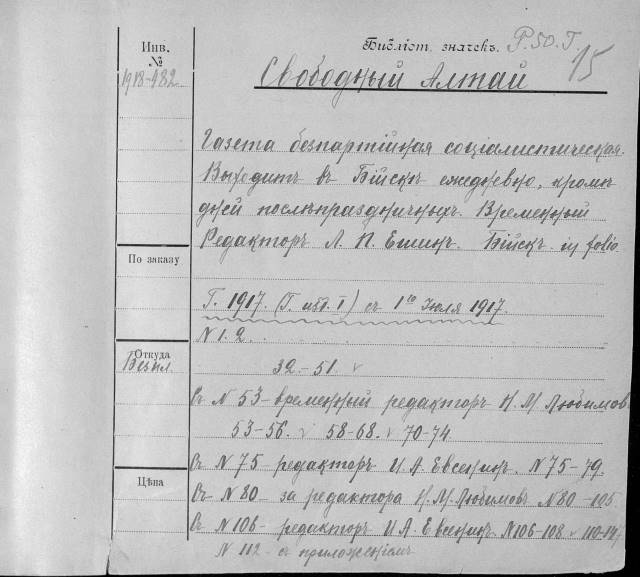 Инв.
№
1918-482
Библіот. значекъ. Р.50.Г.
15
Свободный Алтай
Газета безпартійная соціалистическая.
Выходитъ въ Бійскѣ ежедневно, кромѣ
дней послѣпраздничныхъ. Временный
Редакторъ Л. П. Ешинъ. Бійскъ. in folio
По заказу
Г. 1917. (Г. изд. I) съ 1го Іюля 1917.
N 1. 2.
Откуда
Безпл.
32.-51. v
Съ N 53 - временный редакторъ Н. М. Любимовъ
53-56. v 58-68. v 70-74.
Съ N 75 редакторъ И. А. Евсенинъ. N 75-79.
Цѣна
Съ N 80 - за редактора Н. М. Любимовъ N 80-105
Съ N 106 - редакторъ И. А. Евсенинъ. N 106-108. v 110-
N 112 съ приложеніемъ